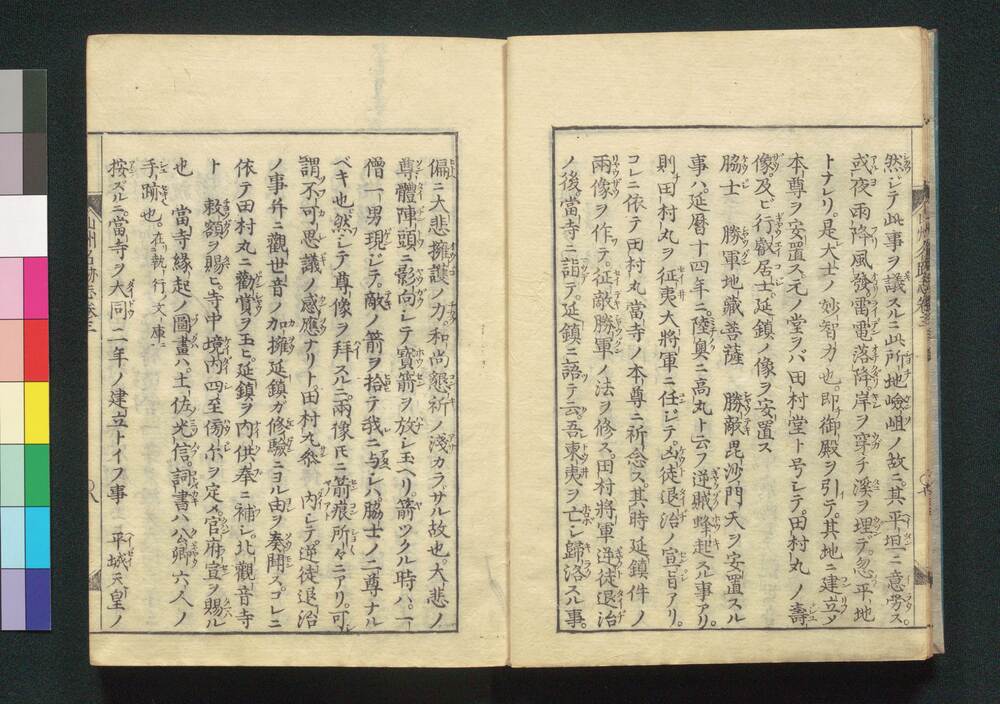 然シテ此事ヲ議スルニ此所地嶮岨ノ故ニ其平坦ニ意労ス。
或夜雨降風發雷電落降岸ヲ穿チ溪ヲ埋テ忽平地
トナレリ。是大士ノ妙智力也。即御殿ヲ引テ其地ニ建立ス
本尊ヲ安置ス元ノ堂ヲバ田村堂ト号シテ田村丸ノ壽
像及ビ行叡居士延鎮ノ像ヲ安置ス
脇士 勝軍地藏菩薩 勝敵毘沙門天ヲ安置スル
事ハ延暦十四年ニ陸奥ニ高丸ト云フ逆賊蜂起スル事アリ
則田村丸ヲ征夷大將軍ニ任ジテ凶徒退治ノ宣旨アリ。
コレニ依テ田村丸當寺ノ本尊ニ祈念ス。其時延鎮件ノ
兩像ヲ作テ征敵勝軍ノ法ヲ修ス田村將軍逆徒退治
ノ後當寺ニ詣テ延鎮ニ語テ云吾東夷ヲ亡シ歸洛スル事。
偏ニ大悲擁護ノ力和尚懇祈ノ淺カラザル故也。大悲ノ
尊體陣頭ニ影向シテ寳箭ヲ放シ玉ヘリ。箭ツクル時ハ一
僧一男現ジテ敵ノ箭ヲ拾テ我ニ与シハ脇士ノ二尊ナル
ベキ也。然シテ尊像ヲ拜スルニ兩像氏ニ箭痕所々ニアリ。可
謂不可思議ノ感應ナリト。田村丸參 内シテ逆徒退治
ノ事并ニ觀世音ノ加擁延鎮ガ修驗ニヨル由ヲ奏聞ス。コレニ
依テ田村丸ニ勸賞ヲ玉ヒ延鎮ヲ内供奉ニ補シ。北觀音寺
ト 敕額ヲ賜ヒ寺中境内四至傍尓ヲ定メ官府宣ヲ賜ル
也 當寺緣起ノ圖畫ハ土佐光信詞書ハ公卿六人ノ
手跡也。在執行文庫ニ
按ズルニ當寺ヲ大同二年ノ建立トイフ事 平城天皇ノ
山州名跡志卷三